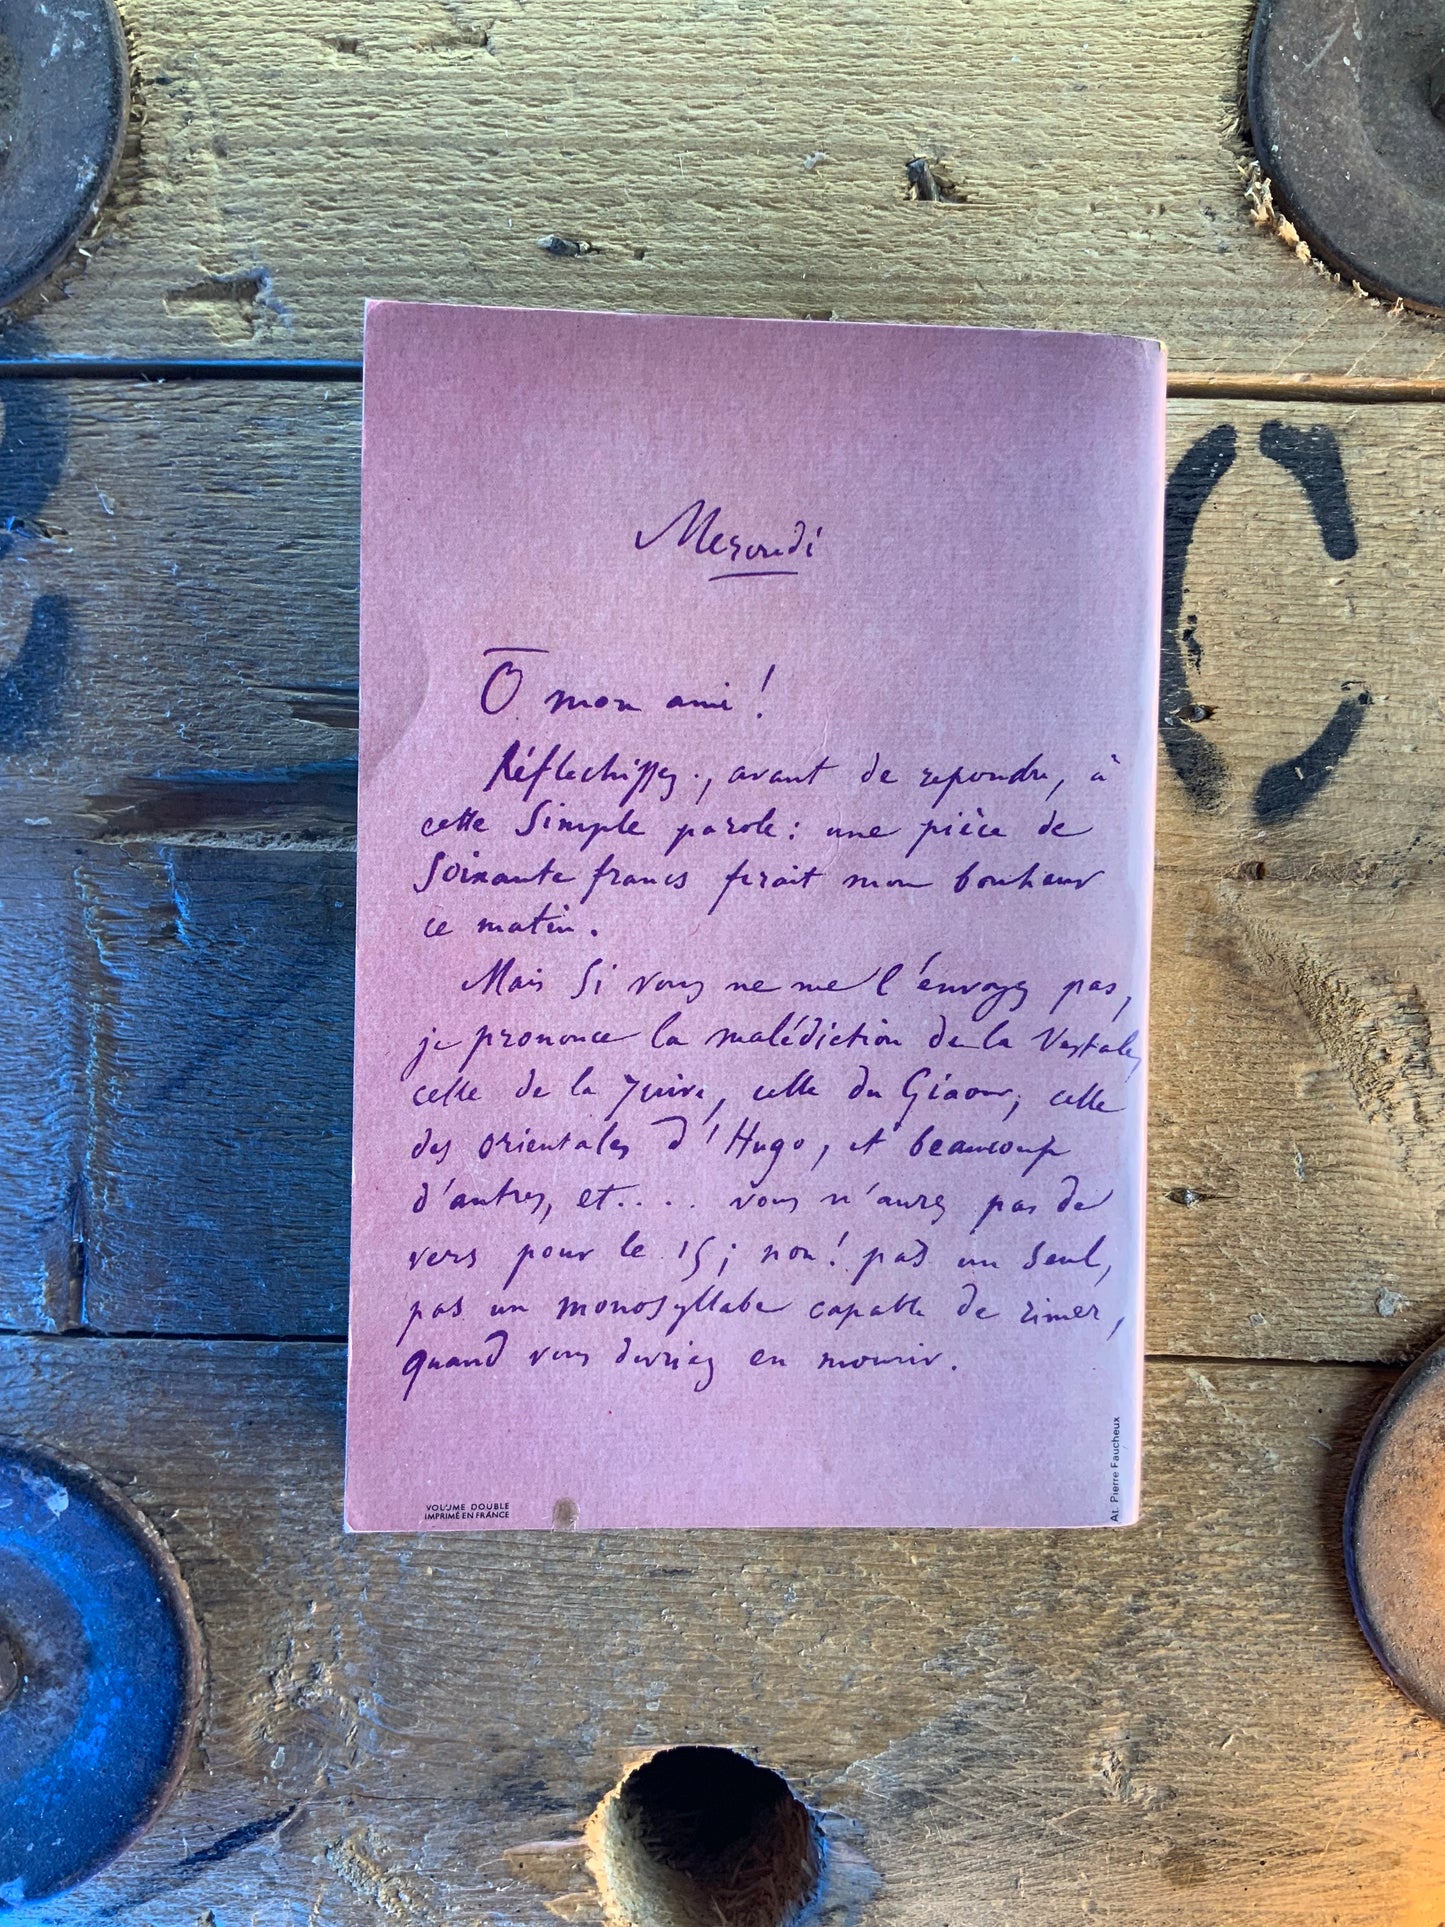 Mercredi
O mon ami !
Réflechissez, avant de repondre, à
cette simple parole : une pièce de
Soixante francs ferait mon bonheur
ce matin.
Mais si vous ne me l'envoyez pas,
je prononce la malédiction de la Vestale,
celle de la Juive, celle du Giaour, celle
des orientales d'Hugo, et beaucoup
d'autres, et.... vous n'aurez pas de
vers pour le 15 ; non ! pas un seul,
pas un monosyllabe capable de rimer,
quand vous devriez en mourir.
VOLUME DOUBLE
IMPRIMÉ EN FRANCE
At. Pierre Faucheux